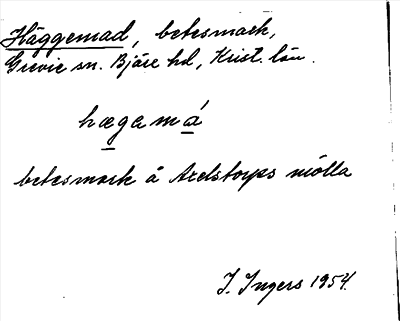 Häggemad, betesmark,
Grevie sn. Bjäre hd, Krist. län.
hægamá
betesmark å Axelstorps mölla
I. Ingers 1954.